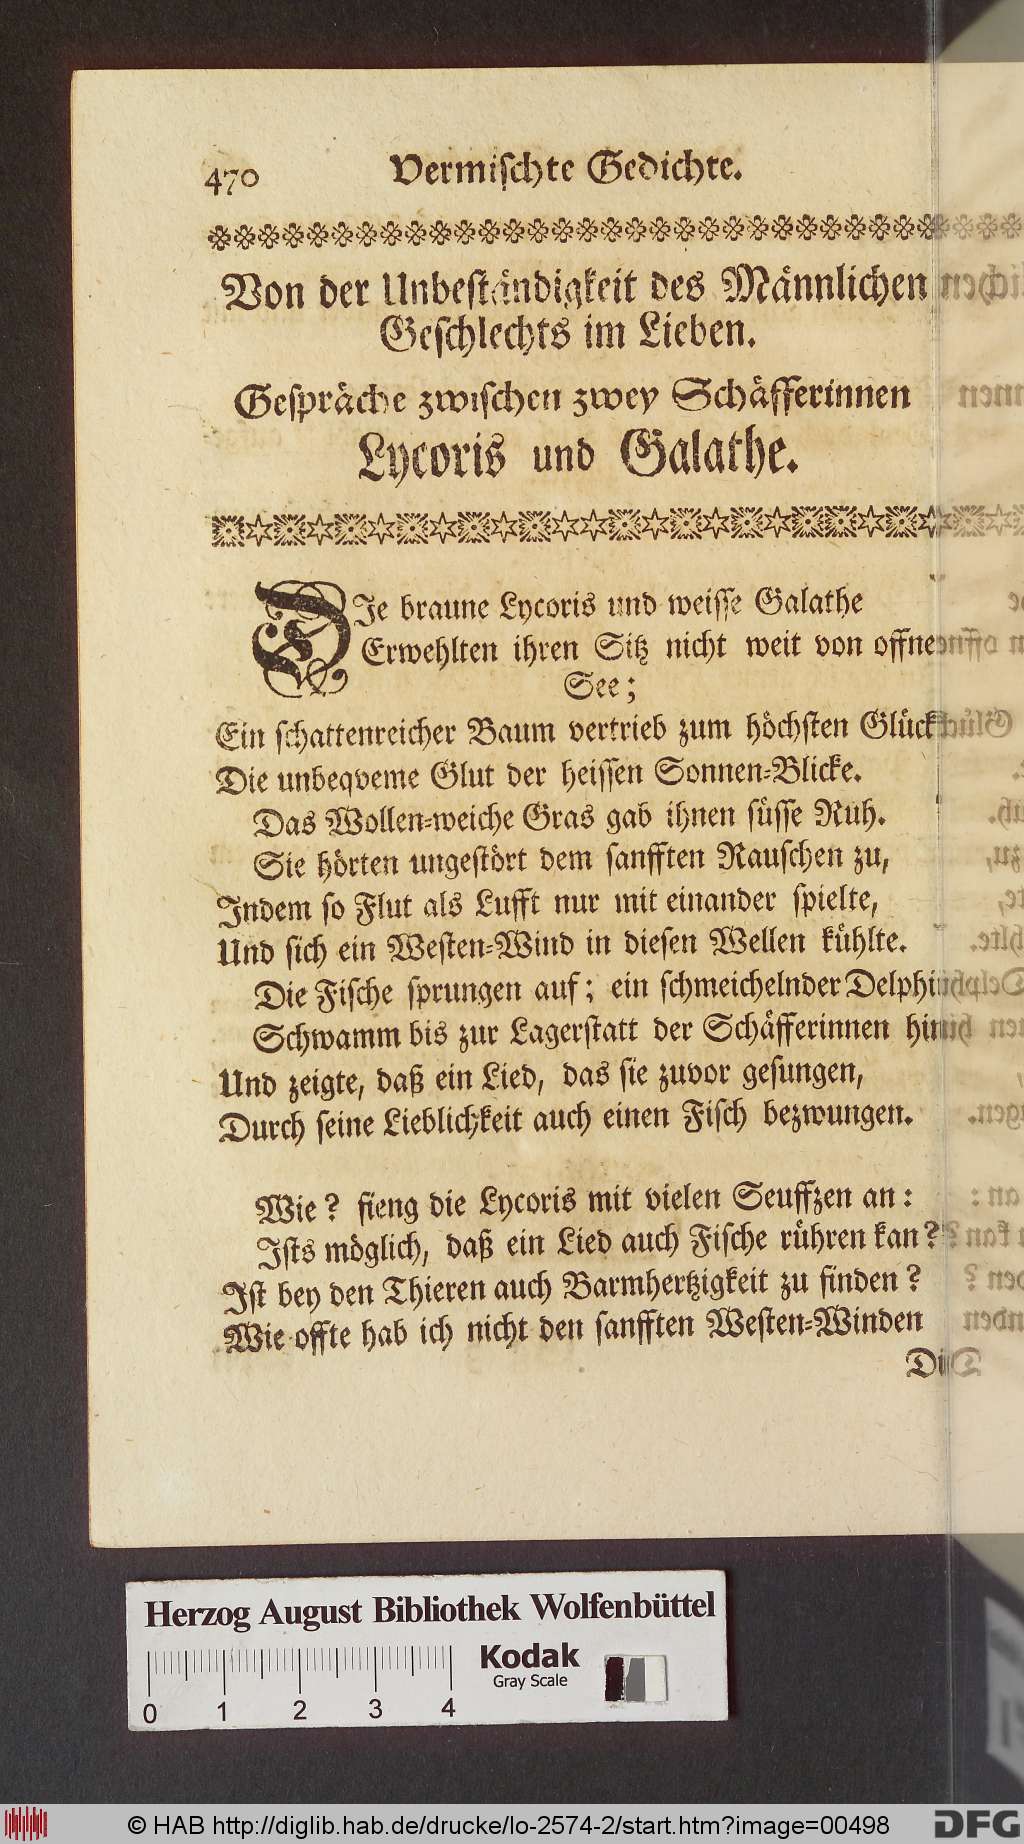 470 Vermischte Gedichte.
Von der Unbeständigkeit des Männlichen
Geschlechts im Lieben.
Gespräche zwischen zwey Schäfferinnen
Lycoris und Galathe.
DIe braune Lycoris und weisse Galathe
Erwehlten ihren Sitz nicht weit von offner
See;
Ein schattenreicher Baum vertrieb zum höchsten Glücke
Die unbeqveme Glut der heissen Sonnen-Blicke.
Das Wollen-weiche Gras gab ihnen süsse Ruh.
Sie hörten ungestört dem sanfften Rauschen zu,
Indem so Flut als Lufft nur mit einander spielte,
Und sich ein Westen-Wind in diesen Wellen kühlte.
Die Fische sprungen auf; ein schmeichelnder Delphin
Schwamm bis zur Lagerstatt der Schäfferinnen hin
Und zeigte, daß ein Lied, das sie zuvor gesungen,
Durch seine Lieblichkeit auch einen Fisch bezwungen.
Wie? fieng die Lycoris mit vielen Seuffzen an:
Ists möglich, daß ein Lied auch Fische rühren kan?
Ist bey den Thieren auch Barmhertzigkeit zu finden?
Wie offte hab ich nicht den sanfften Westen-Winden
Herzog August Bibliothek Wolfenbüttel
Kodak
Gray Scale
0 1 2 3 4
© HAB http://diglib.hab.de/drucke/lo-2574-2/start.htm?image=00498
DFG